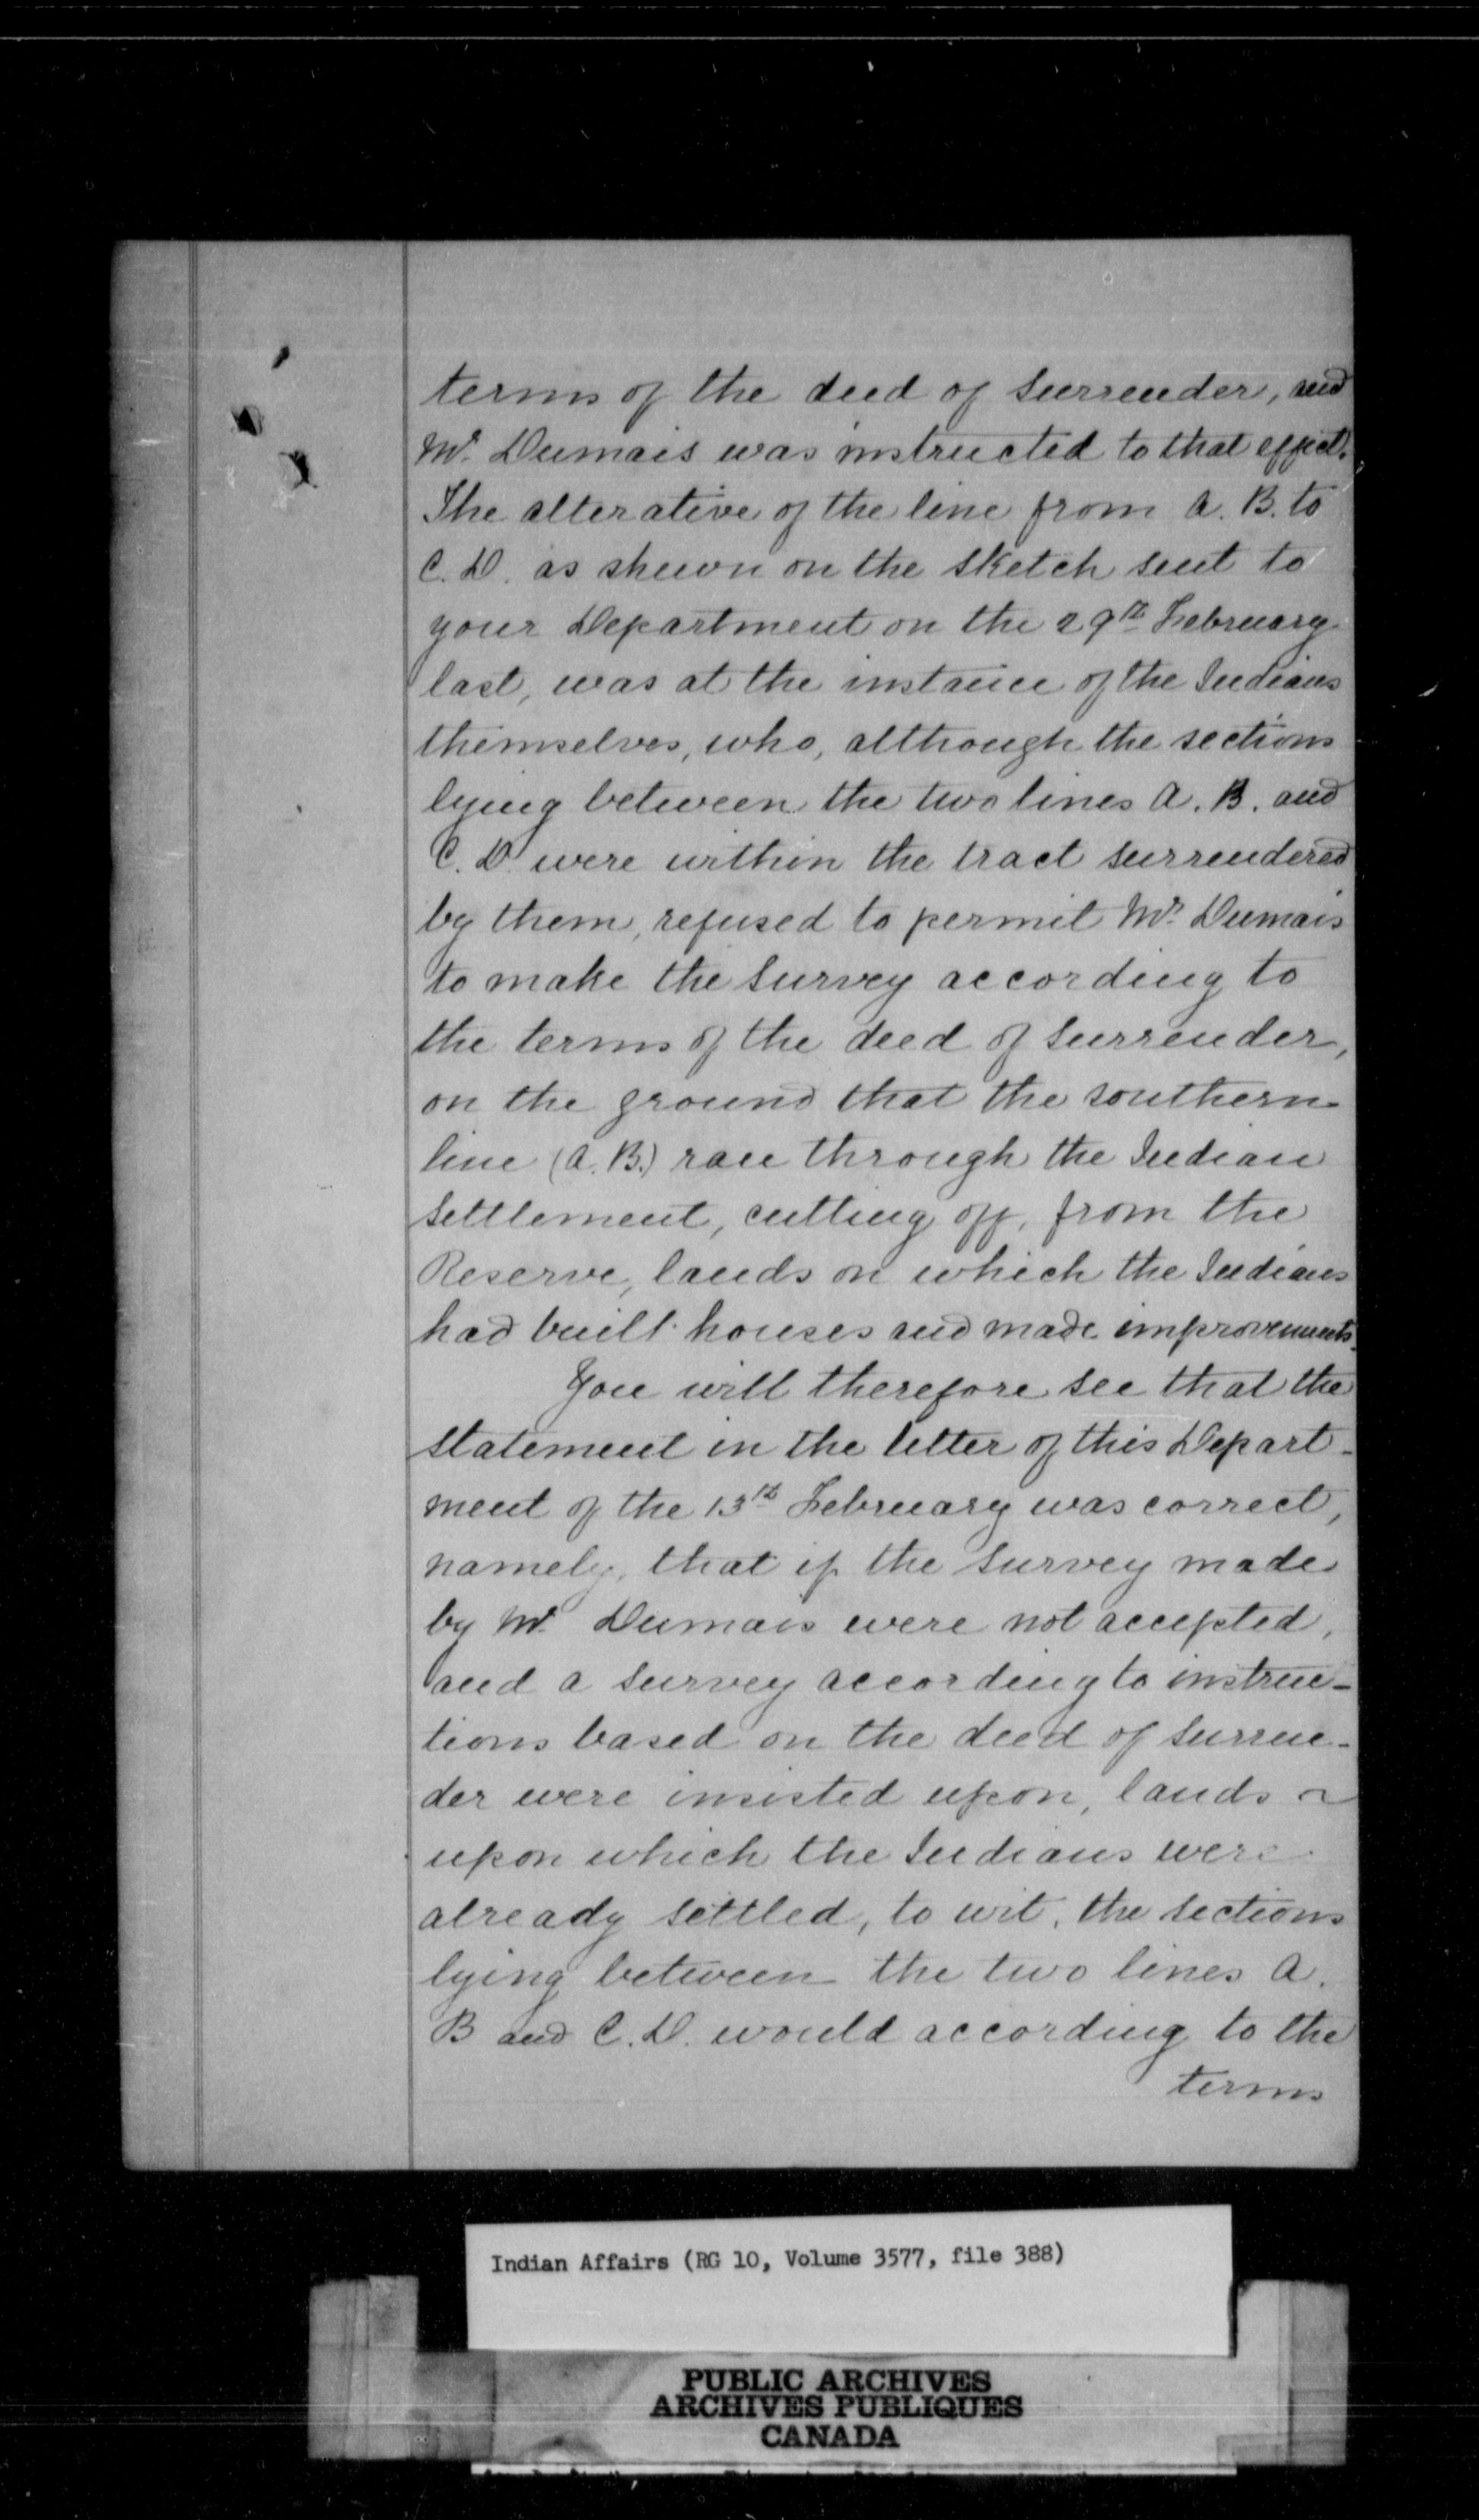 terms of the deed of surrender, and
Mr. Dumais was instructed to that effect.
The alterative of the line from A. B. to
C. D. as shewn on the sketch sent to
your Department on the 29th February
last, was at the instance of the Indians
themselves, who, although the sections
lying between the two lines A. B. and
C. D. were within the tract surrendered
by them, refused to permit Mr. Dumais
to make the survey according to
the terms of the deed of surrender,
on the ground that the southern
line (A. B.) ran through the Indian
settlement, cutting off, from the
Reserve, lands on which the Indians
had built houses and made improvements.
You will therefore see that the
statement in the letter of this Depart-
ment of the 13th February was correct,
namely, that if the survey made
by Mr. Dumais were not accepted,
and a survey according to instruc-
tions based on the deed of surren-
der were insisted upon, lands
upon which the Indians were
already settled, to wit, the sections
lying between the two lines A.
B and C. D. would according to the
terms
Indian Affairs (RG 10, Volume 3577, file 388)
PUBLIC ARCHIVES
ARCHIVES PUBLIQUES
CANADA